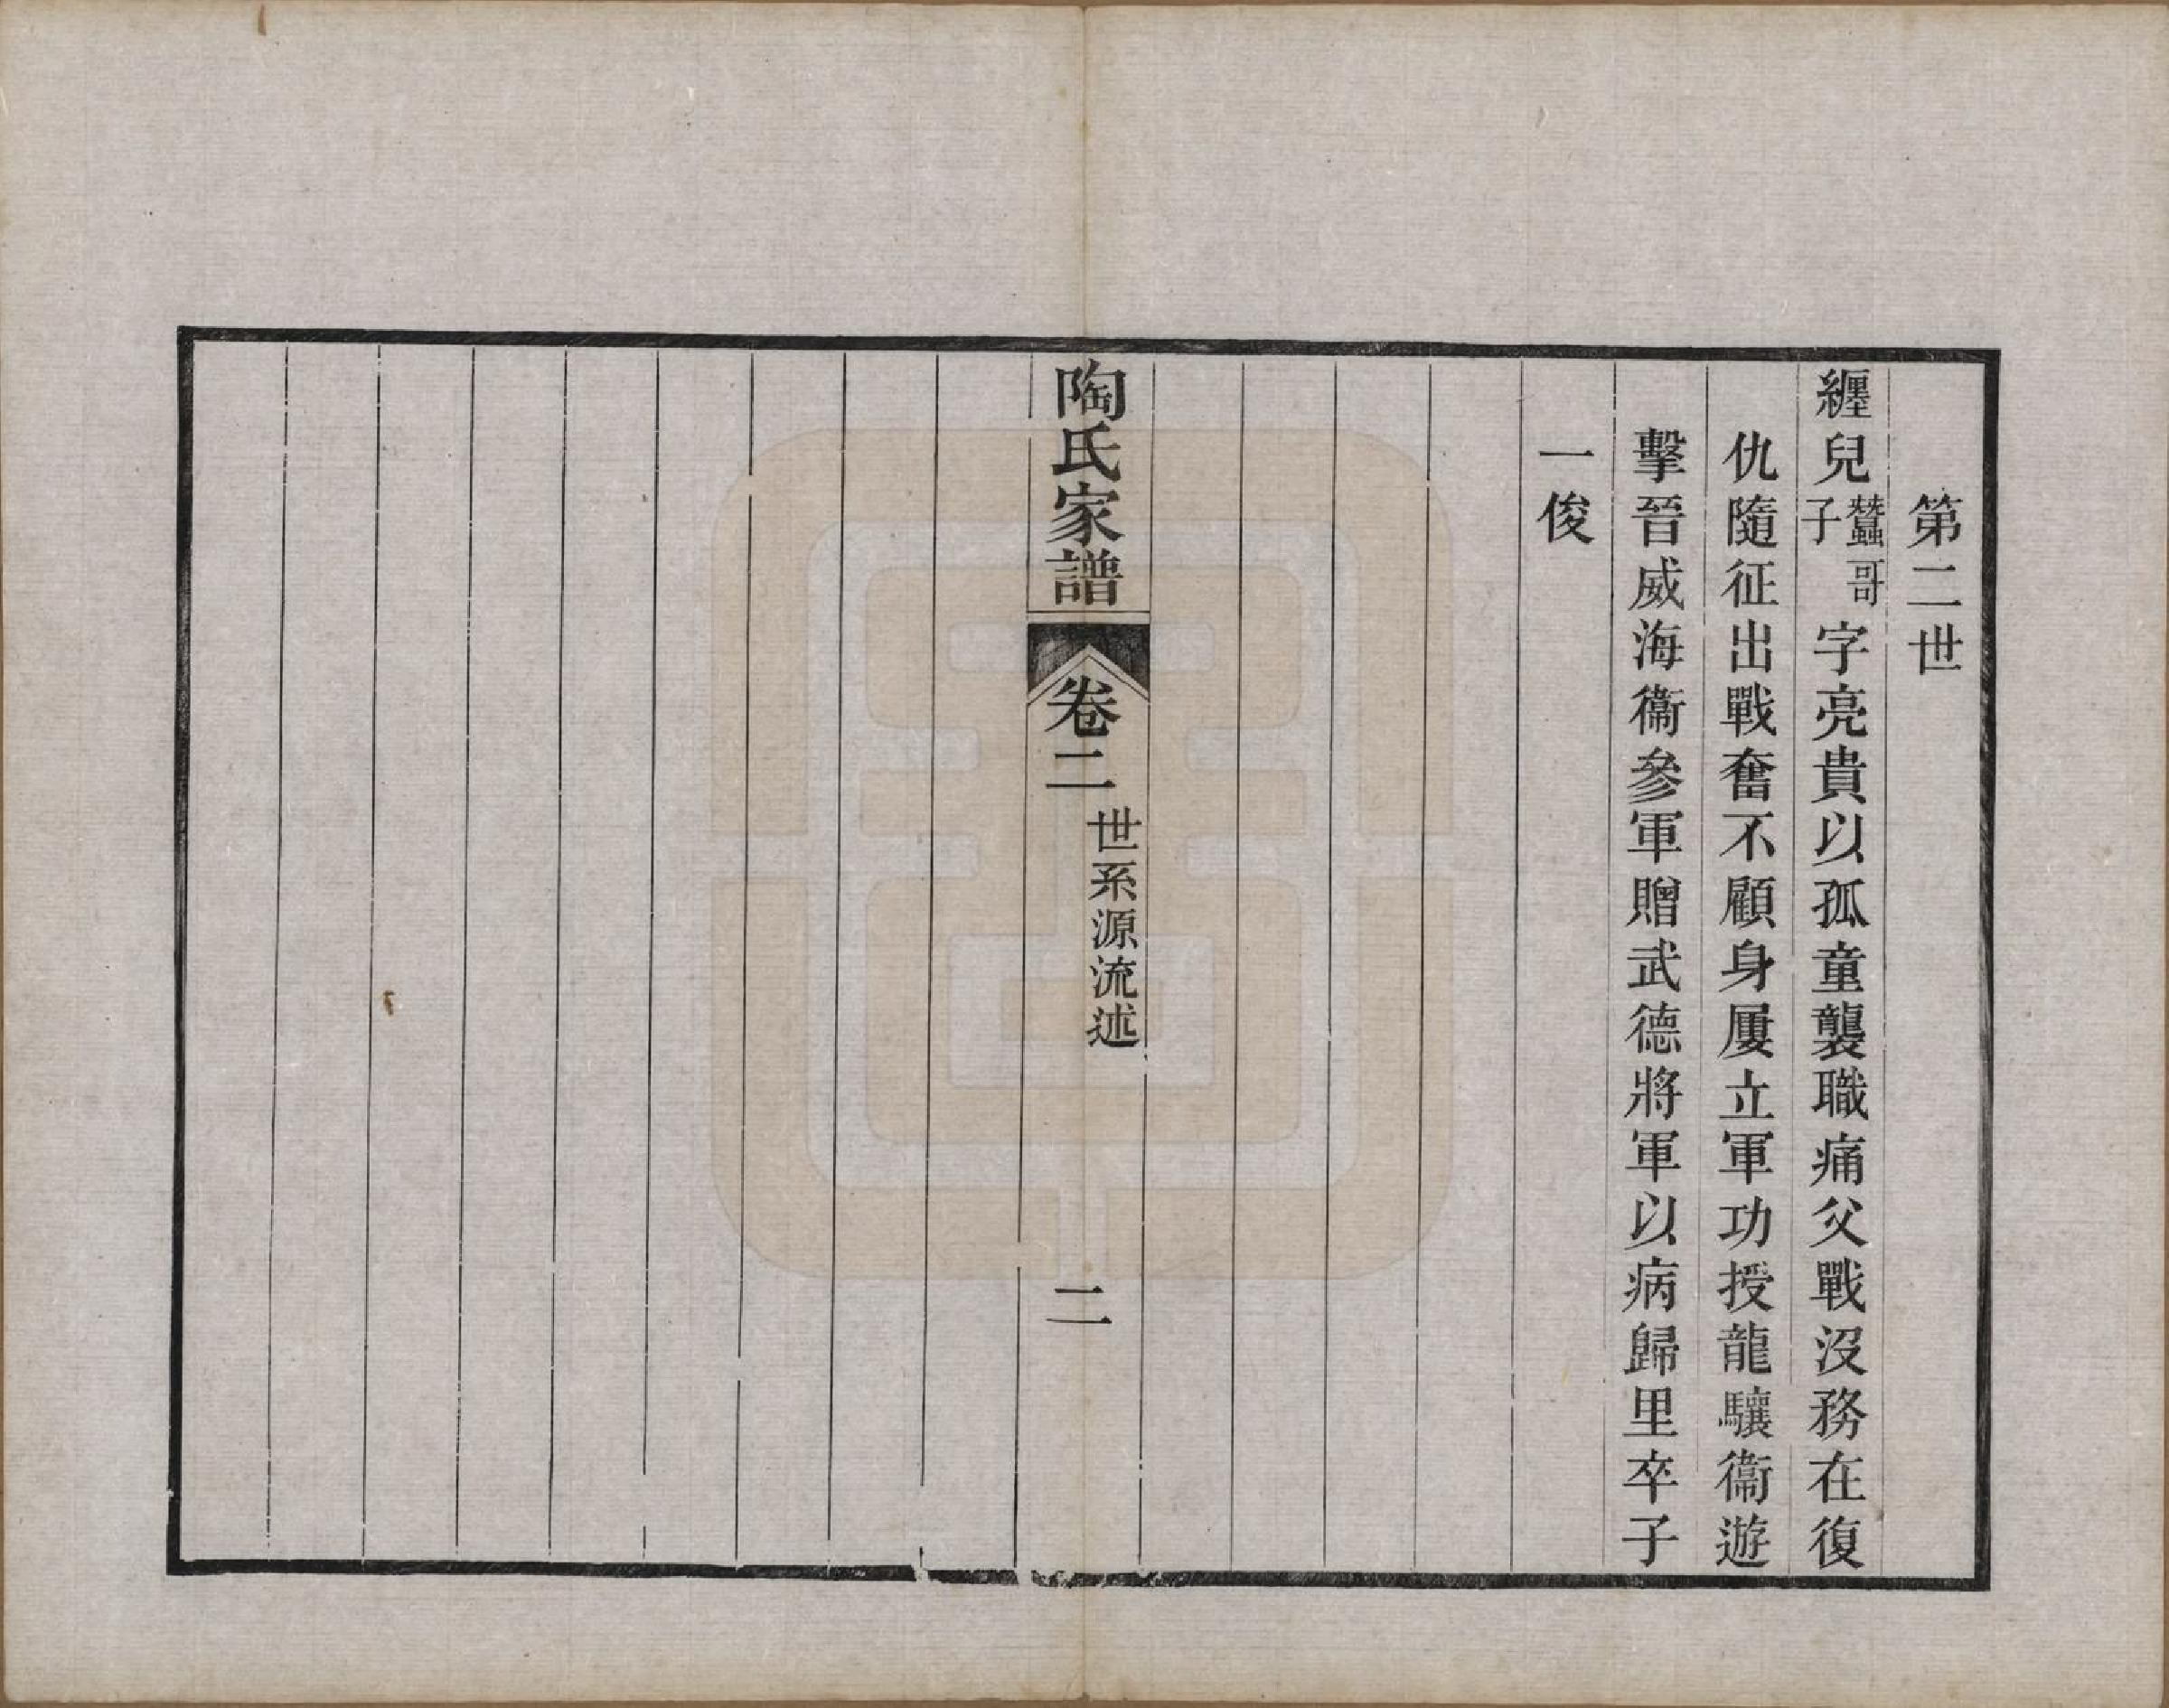 第二世
纏兒蠶哥子字亮貴以孤童襲職痛父戰沒務在復
仇隨征出戰奮不顧身屢立軍功授龍驤衞遊
擊晉威海衞參軍贈武德將軍以病歸里卒子
一俊
陶氏家譜
卷二
世系源流述
二